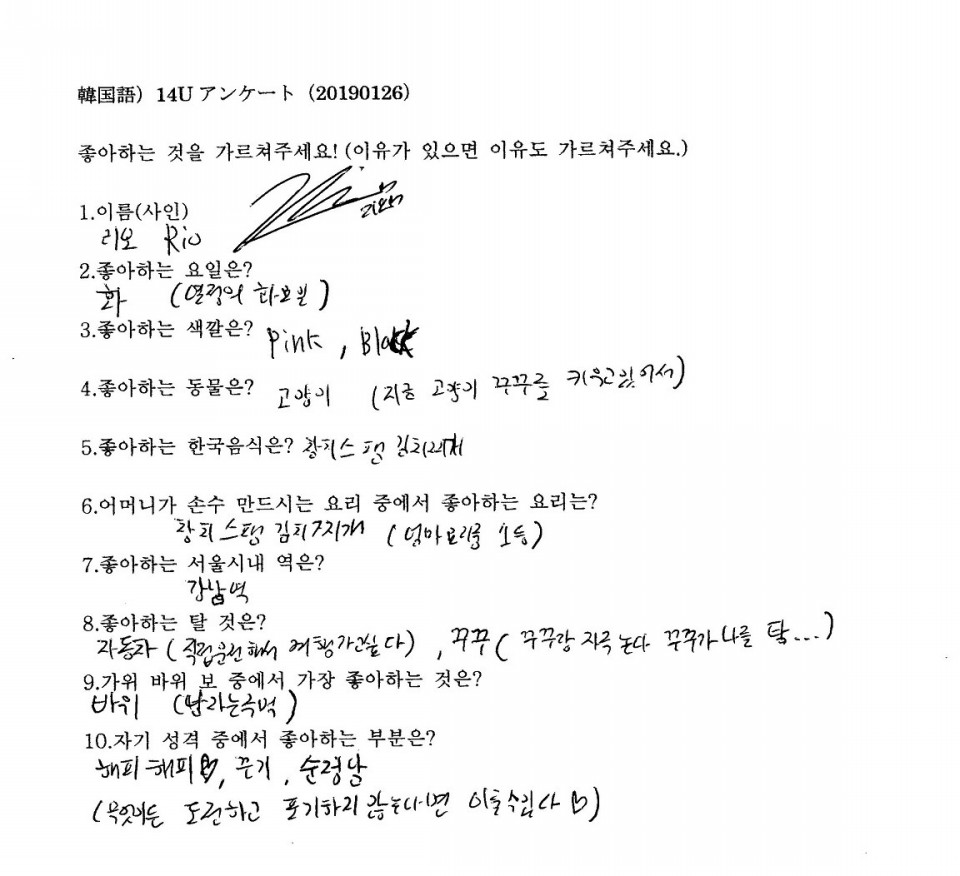 韓国語）14U アンケート（20190126）
좋아하는 것을 가르쳐주세요! (이유가 있으면 이유도 가르쳐주세요.)
1.이름(사인)
리오 Rio
2.좋아하는 요일은?
화 (열정의 화요일)
3.좋아하는 색깔은? Pink , Black
4.좋아하는 동물은? 고양이 (지금 고양이 꾸꾸를 키우고있어서)
5.좋아하는 한국음식은? 참치스팸 김치찌개
6.어머니가 손수 만드시는 요리 중에서 좋아하는 요리는?
참치스팸 김치찌개 (엄마요리중 1등)
7.좋아하는 서울시내 역은?
강남역
8.좋아하는 탈 것은?
자동차 (직접운전해서 여행가고싶다) , 꾸꾸 ( 꾸꾸랑 자주 논다 꾸꾸가 나를 탐...)
9.가위 바위 보 중에서 가장 좋아하는 것은?
바위 (남자는주먹)
10.자기 성격 중에서 좋아하는 부분은?
해피해피♡, 끈기, 순령남
(무엇이든 도전하고 포기하지 않는다면 이룰수있다♡)